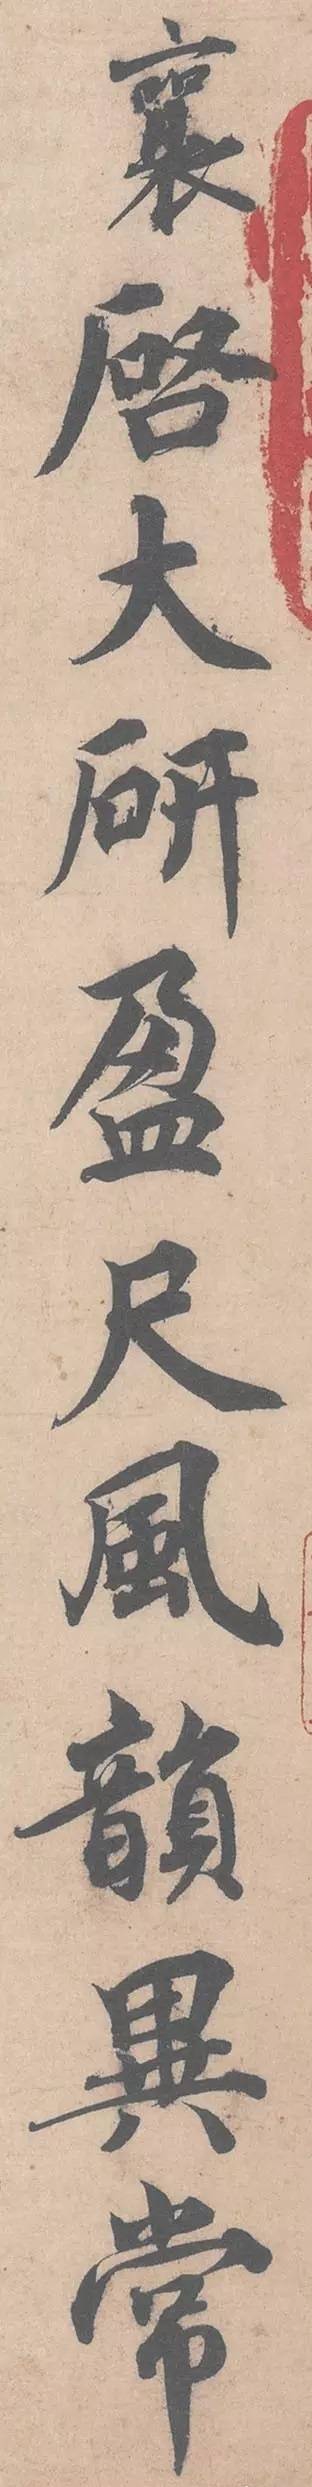 襄啓大研盈尺風韻異常